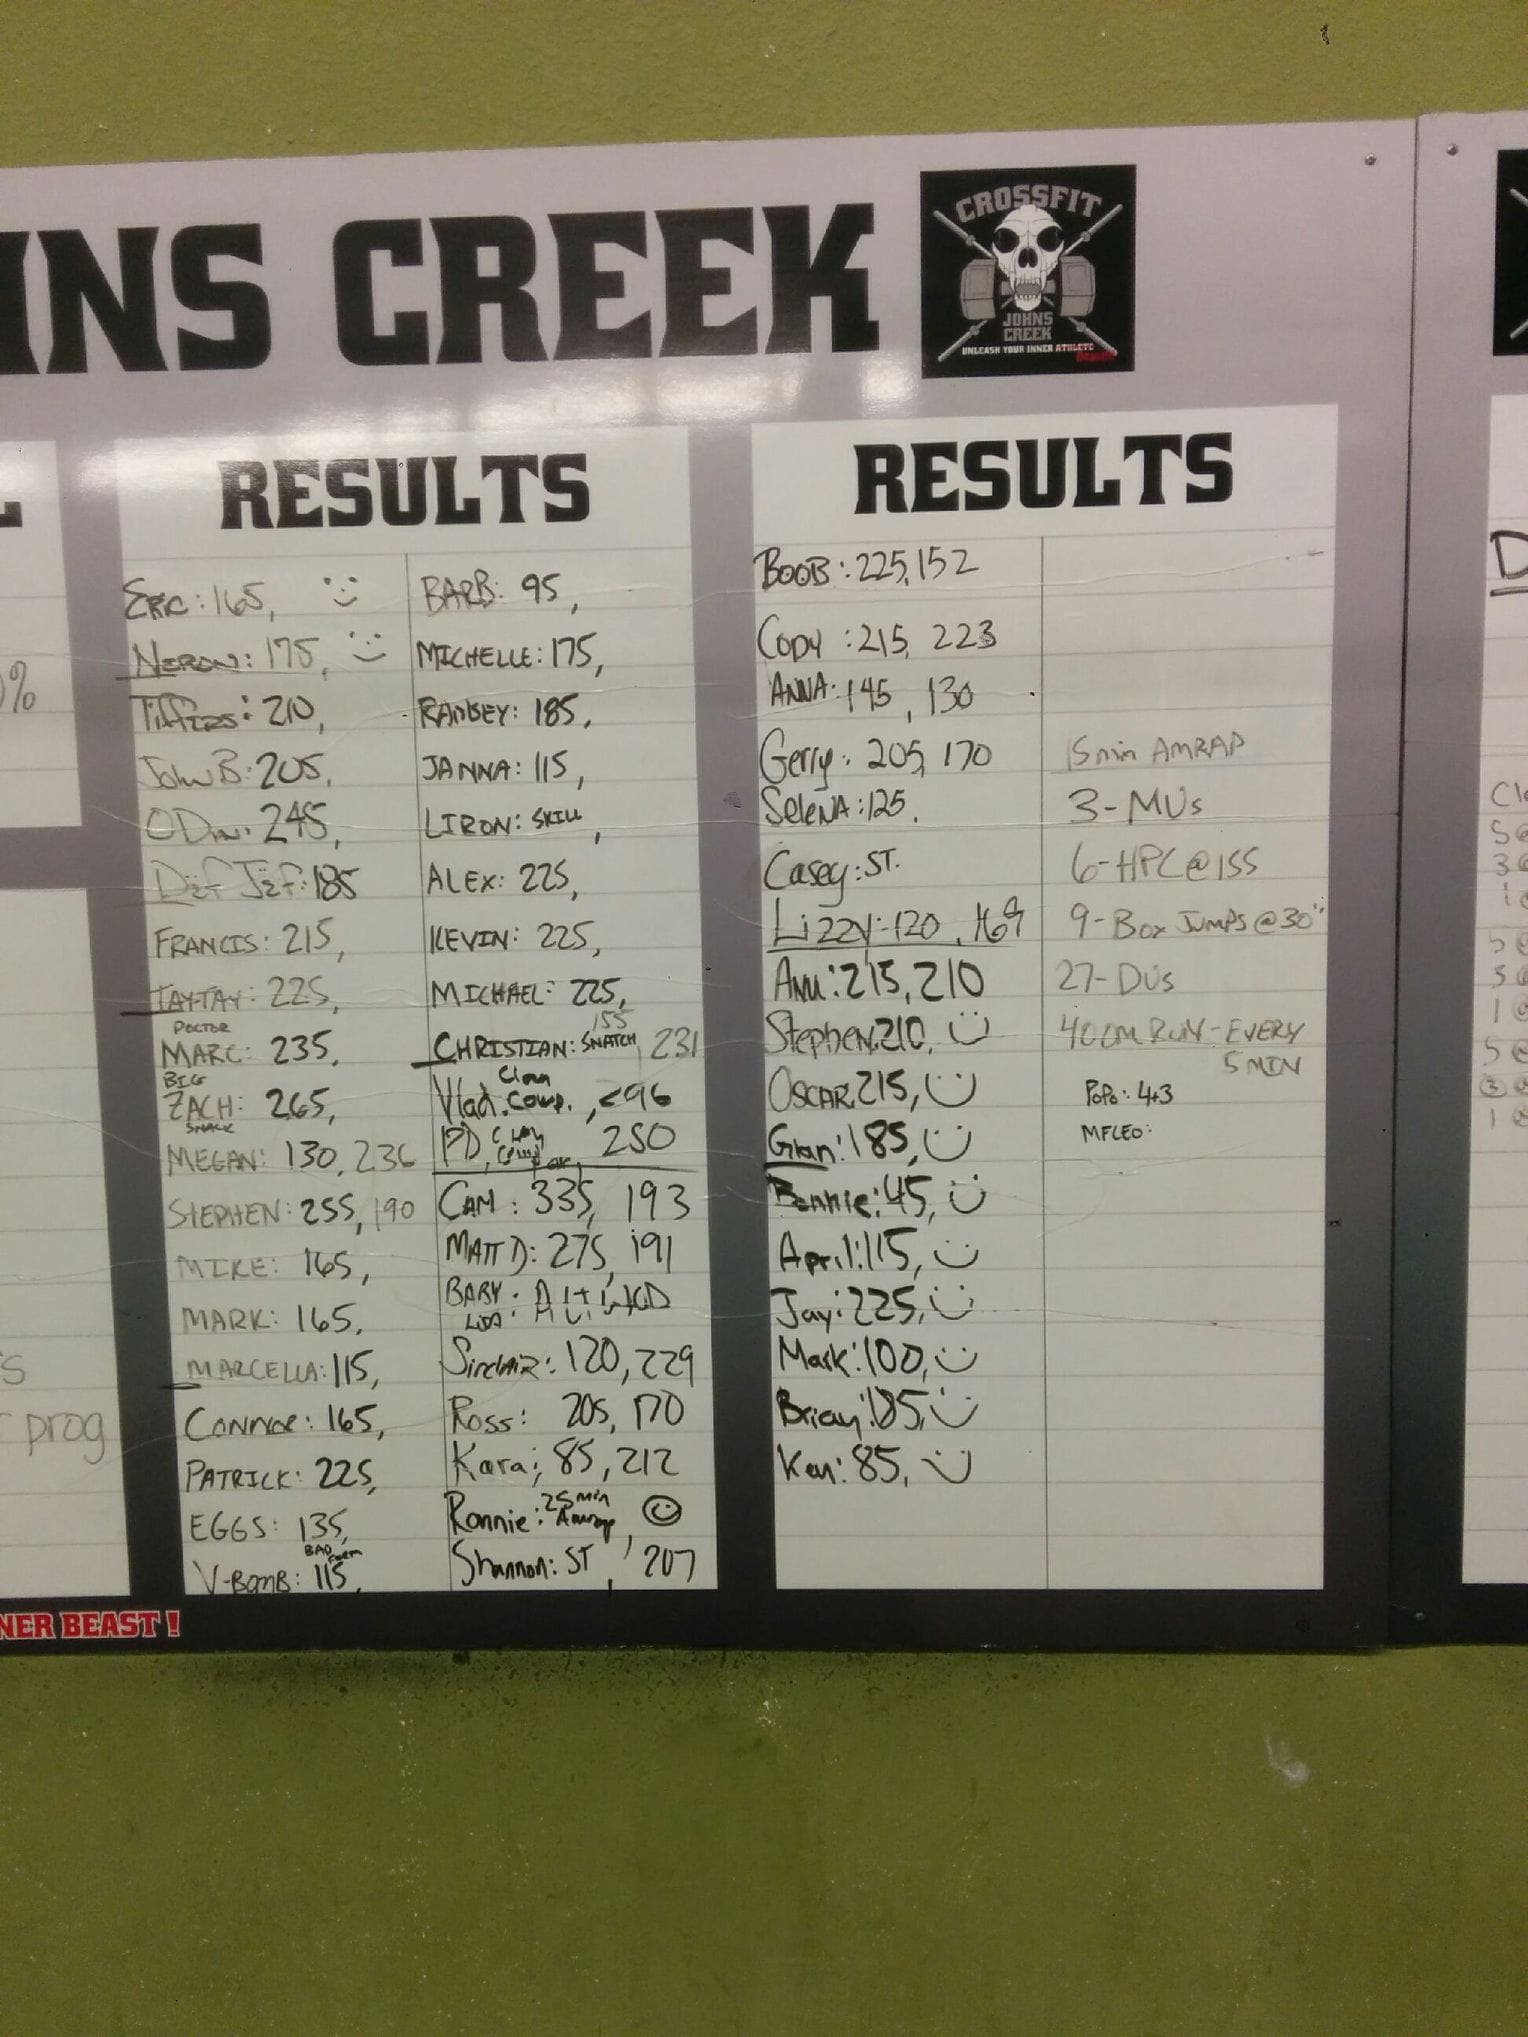 INS CREEK
CROSSFIT
JOHNS
CREEK
UNLEASH YOUR INNER ATHLETE
RESULTS
ERIC: 165,
NERON: 175,
Tiffers: 210,
John B: 205,
ODIN: 245,
Def Jef: 185
FRANCIS: 215,
TAYTAY: 225,
DOCTOR
MARC: 235,
BIG
ZACH: 265,
SNACK
MEGAN: 130, 236
STEPHEN: 255, 190
MIKE: 165,
MARK: 165,
MARCELLA: 115,
CONNOR: 165,
PATRICK: 225,
EGGS: 135,
BAD
V-BOMB: 115,
NER BEAST!
BARB: 95,
MICHELLE: 175,
RAMSEY: 185,
JANNA: 115,
LIRON: SKILL,
ALEX: 225,
KEVIN: 225,
MICHAEL: 225,
155
CHRISTIAN: SNATCH, 231
Clean
Vlad: Comp., <96
PD, 250
CAM: 335, 193
MATT D: 275, 191
BABY
Sinclair: 120, 229
Ross: 205, 170
Kara: 85, 212
25 min
Ronnie: Amrap,
Shannon: ST, 207
RESULTS
BOOB: 225, 152
Cody: 215, 223
ANNA: 145, 130
Gerry: 205, 170
SeleNA: 125.
Casey: ST.
Lizzy: 120, 169
Anu: 215, 210
Stephen: 210,
OSCAR: 215,
Gian: 185,
Bonnie: 45,
April: 115,
Jay: 225,
Mark: 100,
Brian: 185,
Ken: 85,
15 min AMRAP
3-MUs
6-HPC @ 155
9-Box Jumps @ 30"
27-DUs
400M RUN - EVERY
5 MIN
POPO: 4+3
MFCEO:
0%
prog